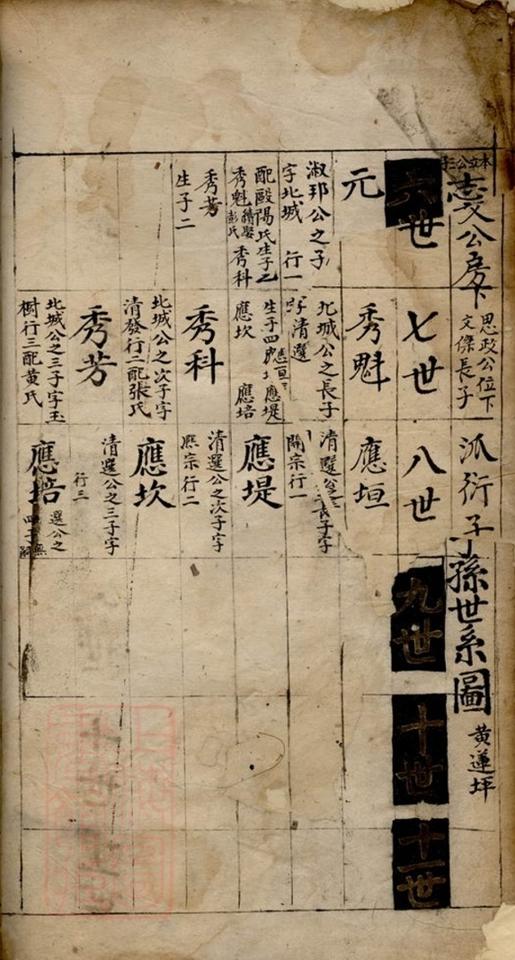 本立公三子
志文公房下
思政公位下
文傑長子
派衍子子孫世系圖
黃蓮坪
六世
七世
八世
九世
十世
十一世
元
淑邦公之子
字北城 行一
配歐陽氏生子三
秀魁 秀科
秀芳
生子二
秀魁
北城公之長子
字清選
生子四 應垣 應堤
應坎 應培
秀科
北城公之次子字
清發行二配張氏
秀芳
北城公之三子字玉
樹行三配黃氏
應垣
清選公之長子字
開宗行一
應堤
清選公之次子字
熙宗行二
應坎
清選公之三子字
行三
應培
選公之
四子